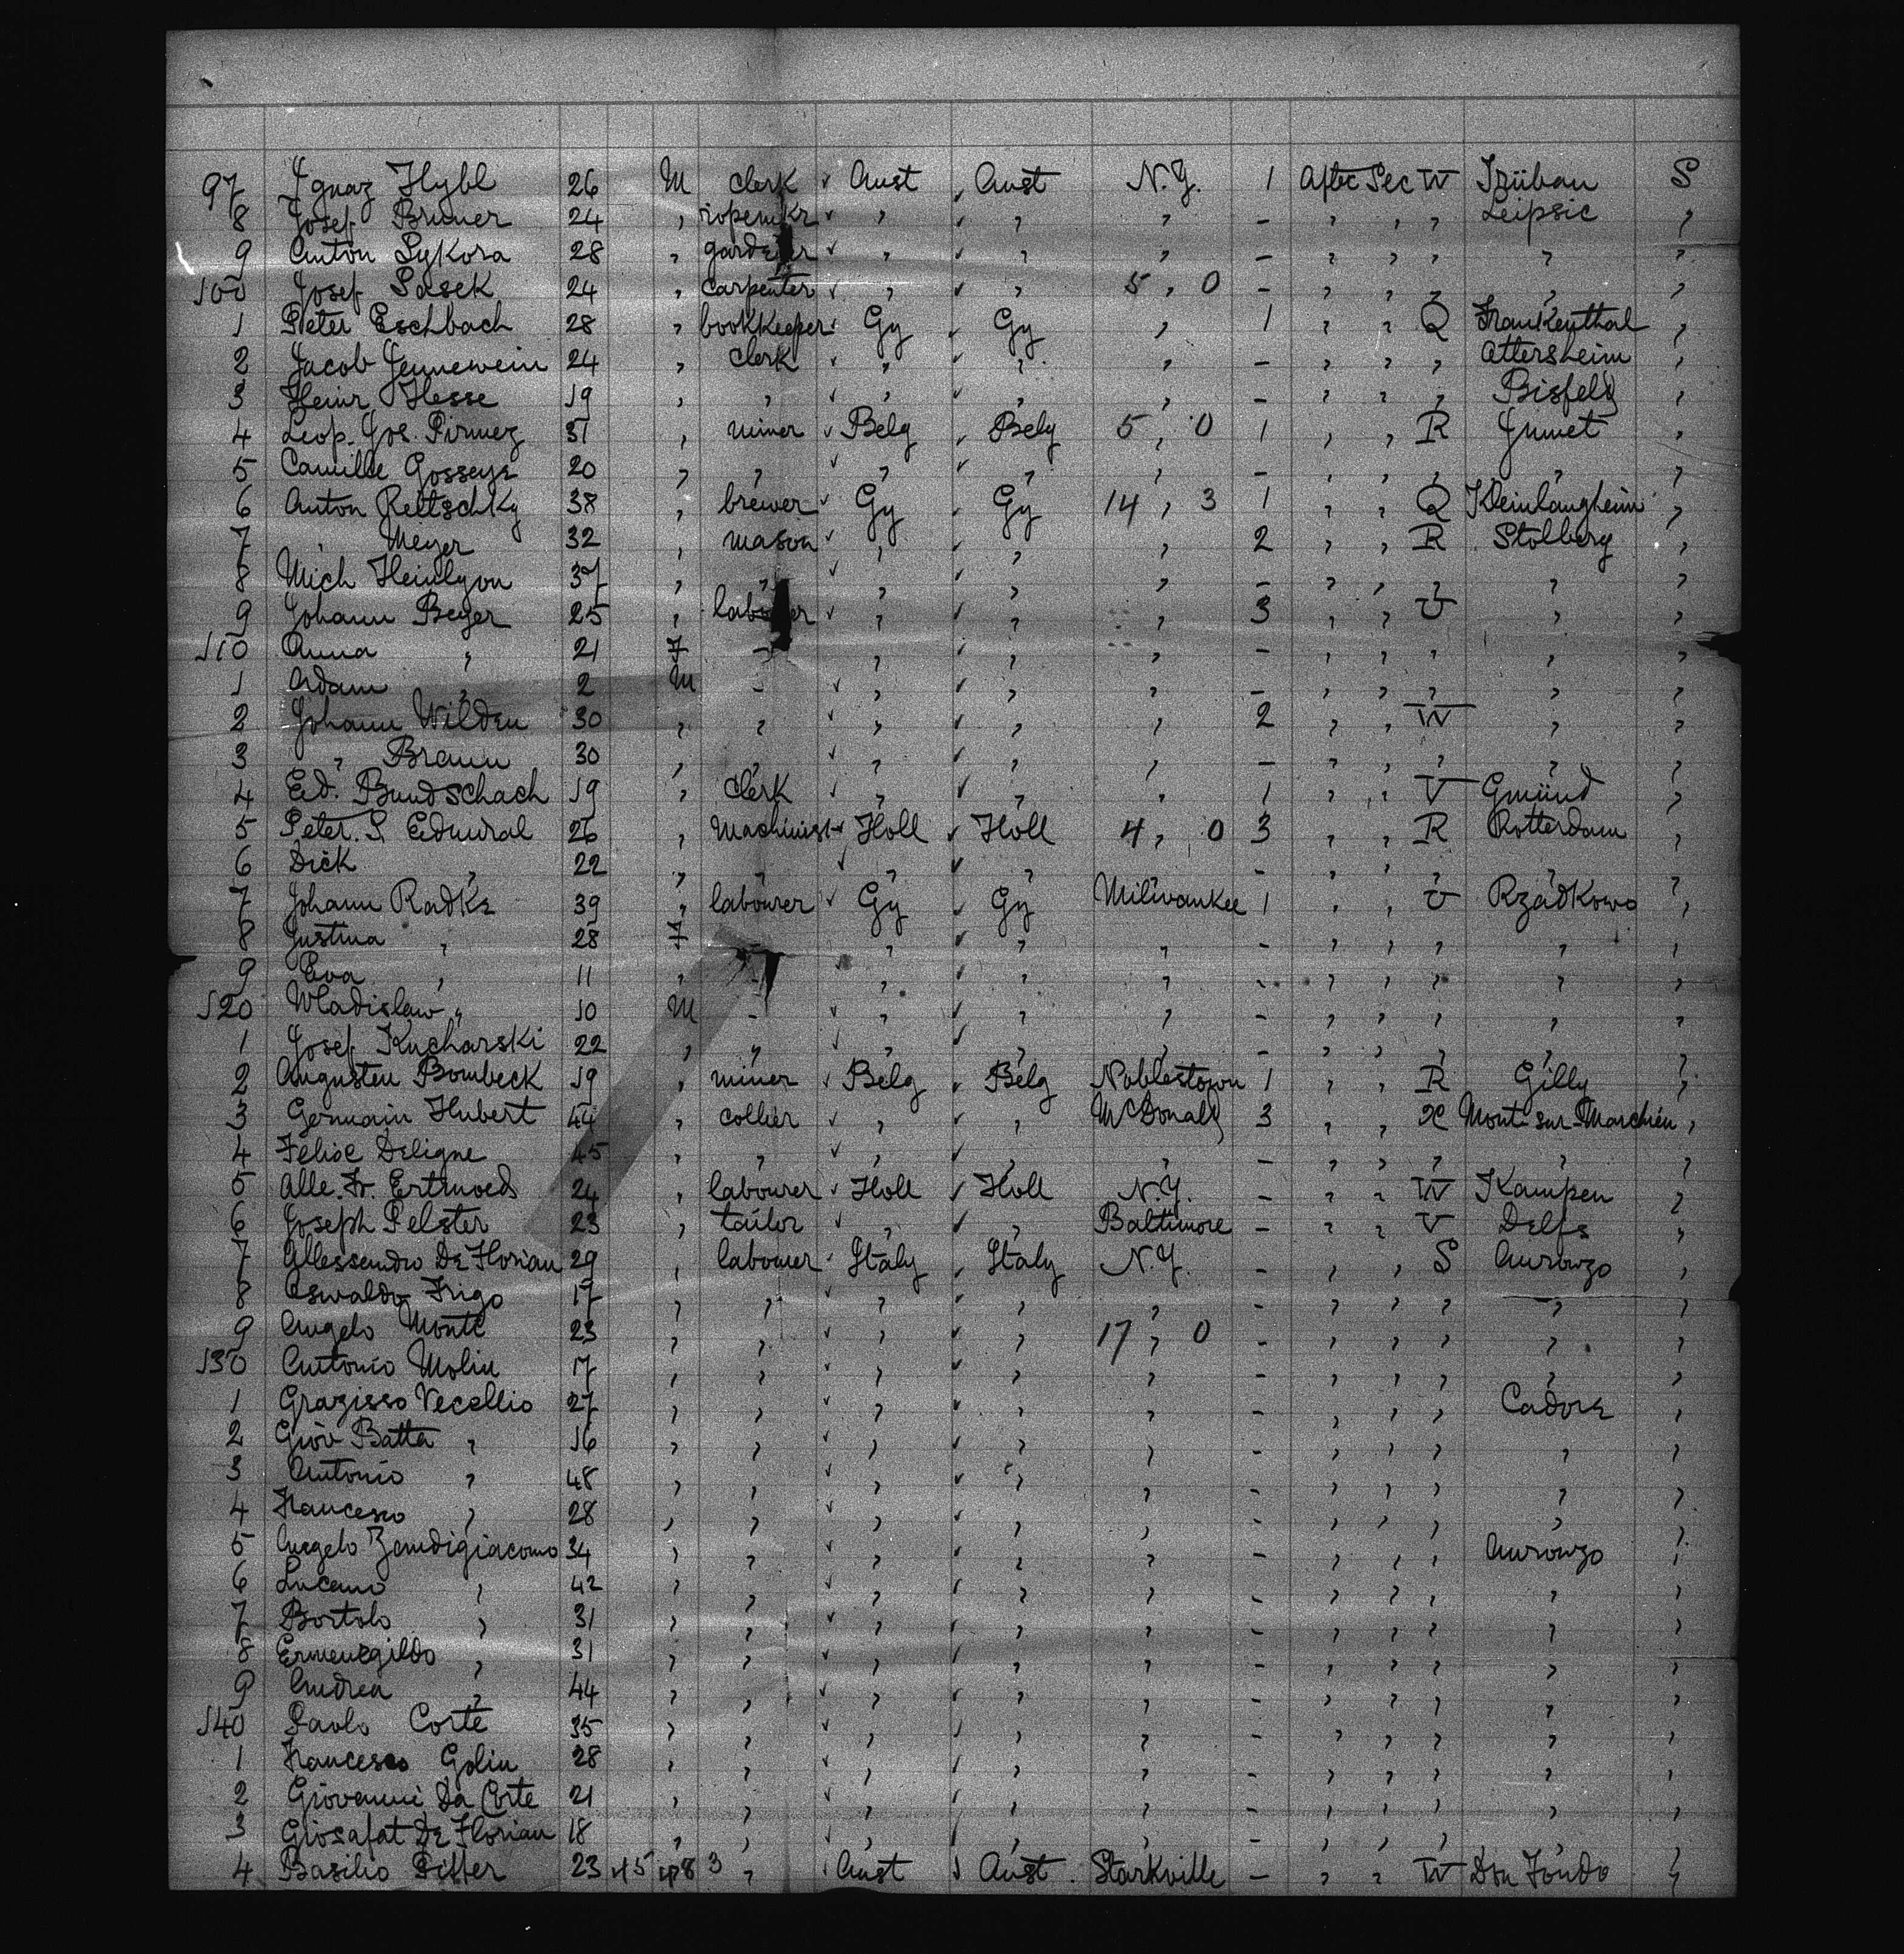 97 Ignaz Hybl 26 M clerk ✓ Aust ✓ Aust N.Y. 1 Aftec Sec W Trübau S
8 Josef Bruner 24 " ropemkr ✓ " ✓ " " - " " " Leipsic "
9 Anton Sykora 28 " gardener ✓ " ✓ " " - " " " " "
100 Josef Pasek 24 " carpenter ✓ " ✓ " 5 " 0 - " " " " "
1 Peter Eschbach 28 " bookkeeper ✓ Gy ✓ Gy " 1 " " Q Frankenthal "
2 Jacob Jennewein 24 " clerk ✓ " ✓ " " - " " " Attersheim "
3 Heinr Hesse 19 " " ✓ " ✓ " " - " " " Bisfeld "
4 Leop. Jos. Pirmez 31 " miner ✓ Belg ✓ Belg 5 " 0 1 " " R Jumet "
5 Camille Gosseye 20 " " ✓ " ✓ " " - " " " " "
6 Anton Reitschky 38 " brewer ✓ Gy ✓ Gy 14 " 3 1 " " Q Kleinlangheim "
7 " Meyer 32 " mason ✓ " ✓ " " 2 " " R Stolberg "
8 Mich Heinlyon 37 " " ✓ " ✓ " " - " " " " "
9 Johann Beyer 25 " labourer ✓ " ✓ " " 3 " " U " "
110 Anna " 21 F - " ✓ " " - " " " " "
1 Adam " 2 M - ✓ " ✓ " " - " " " " "
2 Johann Wilden 30 " " ✓ " ✓ " " 2 " " W " "
3 " Braun 30 " " ✓ " ✓ " " - " " " " "
4 Ed. Bundschach 19 " clerk ✓ " ✓ " " 1 " " V Gmünd "
5 Peter. S. Edmiral 26 " machinist ✓ Holl ✓ Holl 4 " 0 3 " " R Rotterdam "
6 Dick " 22 " " ✓ " ✓ " " - " " " " "
7 Johann Radke 39 " labourer ✓ Gy ✓ Gy Milwaukee 1 " " U Rzadkowo "
8 Justina " 28 F - " ✓ " " - " " " " "
9 Eva " 11 " - " ✓ " " - " " " " "
120 Wladislaw " 10 M - ✓ " ✓ " " - " " " " "
1 Josef Kucharski 22 " " ✓ " ✓ " " - " " " " "
2 Augusten Bombeck 19 " miner ✓ Belg ✓ Belg Noblestown 1 " " R Gilly "
3 Germain Hubert 44 " collier ✓ " ✓ " McDonald 3 " " X Mont-sur-Marchien "
4 Felix Deligne 45 " " ✓ " ✓ " " - " " " " "
5 Alle. Fr. Ertmoed 24 " labourer ✓ Holl ✓ Holl N.Y. - " " W Kampen "
6 Joseph Pelster 23 " tailor ✓ " ✓ " Baltimore - " " V Delfs "
7 Allessandro De Florian 29 " labourer ✓ Italy ✓ Italy N.Y. - " " S Auronzo "
8 Oswaldo Frigo 17 " " ✓ " ✓ " " - " " " " "
9 Angelo Monte 23 " " ✓ " ✓ " 17 " 0 - " " " " "
130 Antonio Molin 17 " " ✓ " ✓ " " - " " " " "
1 Grazisso Vecellio 27 " " ✓ " ✓ " " - " " " Cadore "
2 Giov Batta " 16 " " ✓ " ✓ " " - " " " " "
3 Antonio " 48 " " ✓ " ✓ " " - " " " " "
4 Francesco " 28 " " ✓ " ✓ " " - " " " " "
5 Angelo Zandigiacomo 34 " " ✓ " ✓ " " - " " " Auronzo "
6 Luciano " 42 " " ✓ " ✓ " " - " " " " "
7 Bortolo " 31 " " ✓ " ✓ " " - " " " " "
8 Ermenegildo " 31 " " ✓ " ✓ " " - " " " " "
9 Andrea " 44 " " ✓ " ✓ " " - " " " " "
140 Paolo Corte 35 " " ✓ " ✓ " " - " " " " "
1 Francesco Golin 28 " " ✓ " ✓ " " - " " " " "
2 Giovanni Da Corte 21 " " ✓ " ✓ " " - " " " " "
3 Giosafat De Florian 18 " " ✓ " ✓ " " - " " " " "
4 Basilio Pitter 23 45 48 3 " ✓ Aust ✓ Aust. Starkville - " " W Don Fondo "